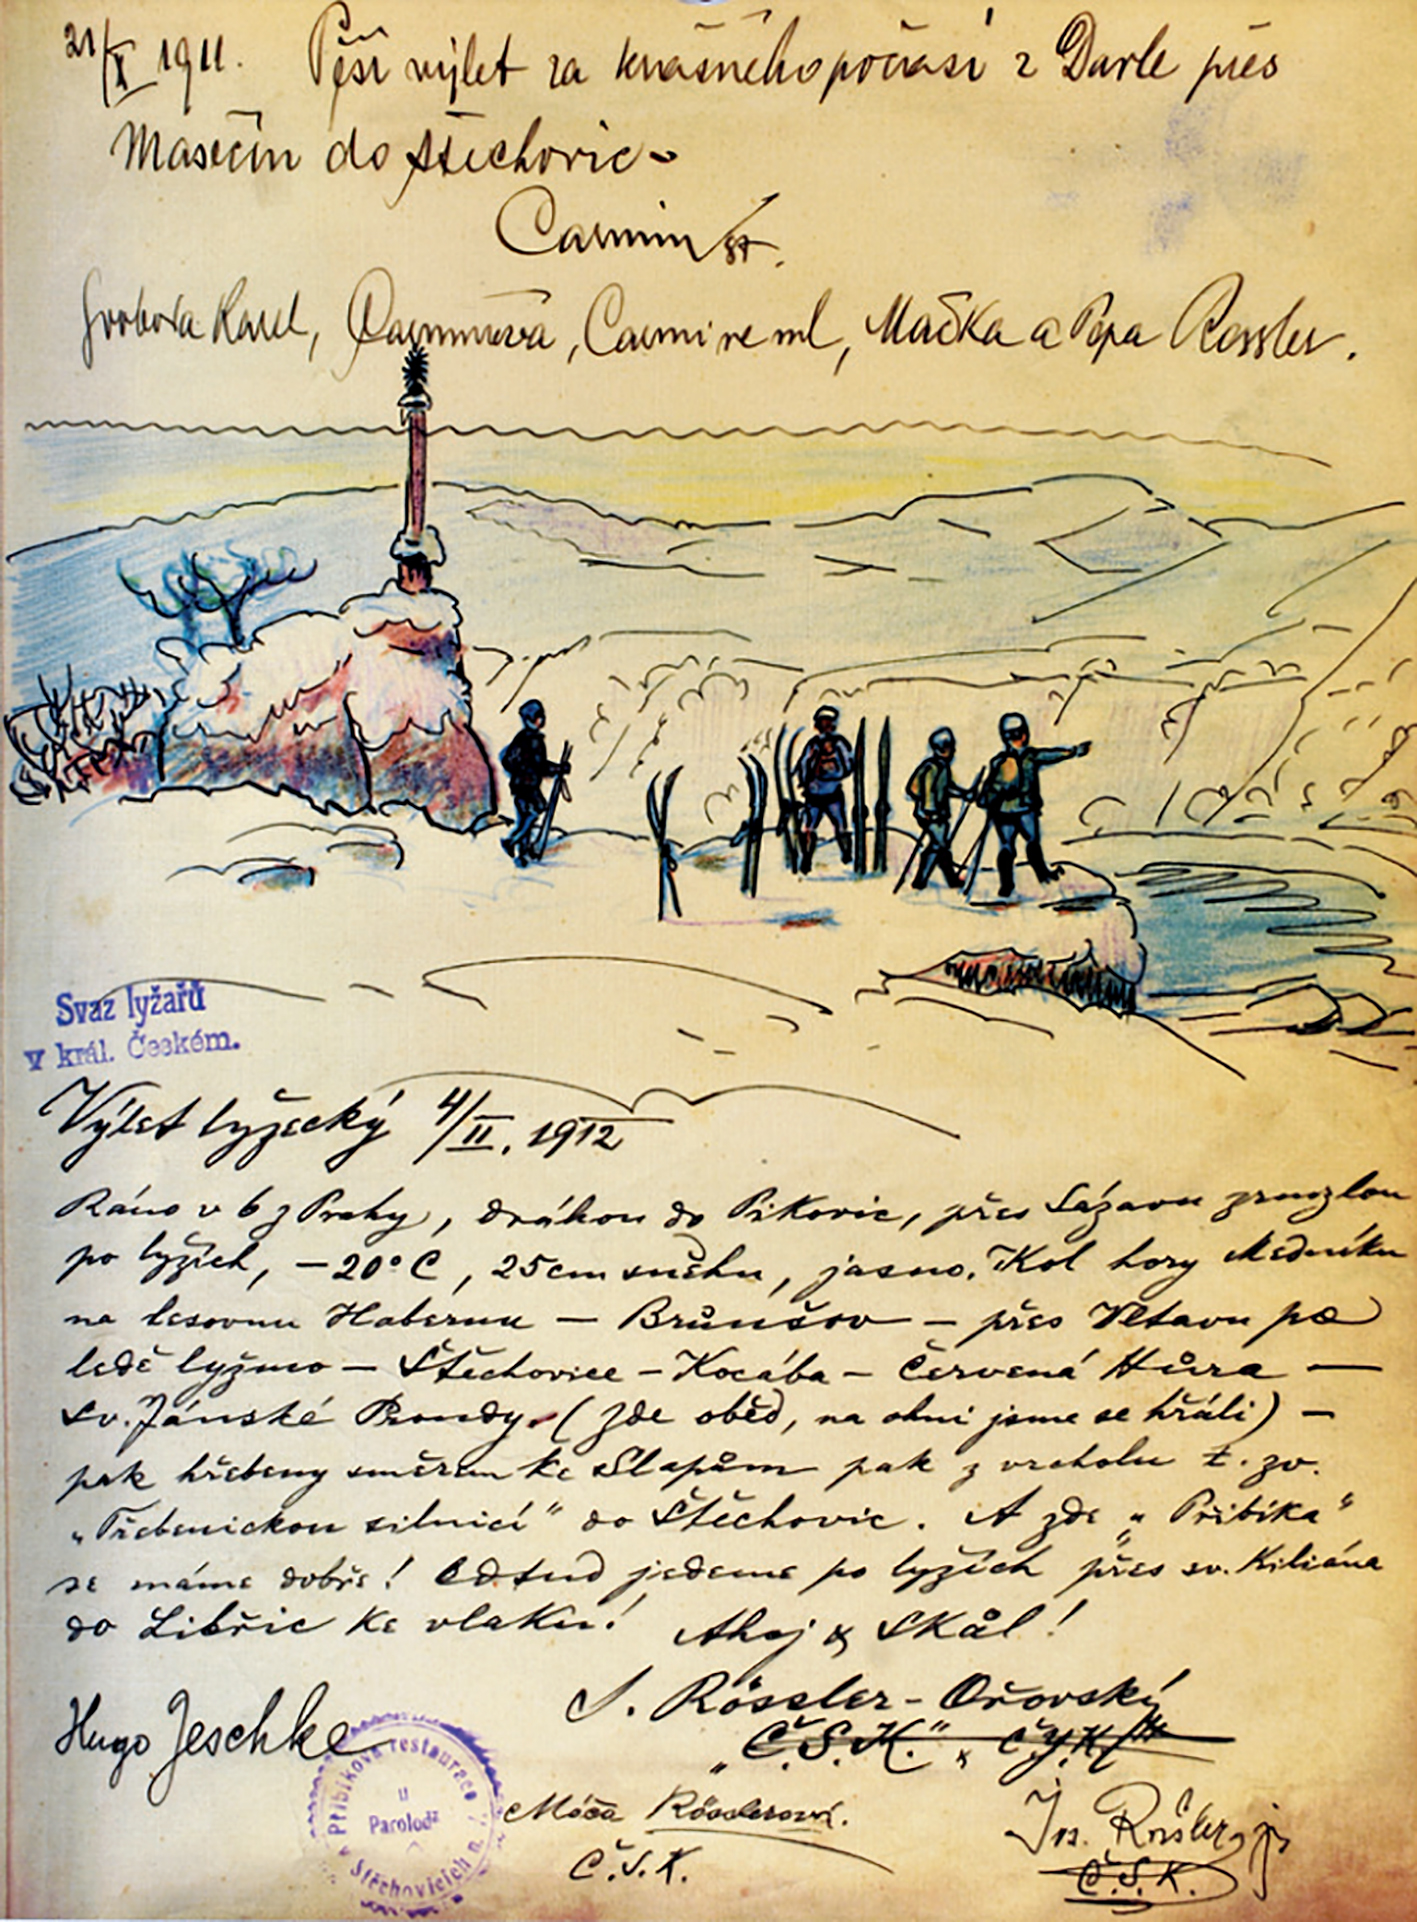 21/X 1911. Pěší výlet za krásného počasí z Davle přes
Masečín do Štěchovic
Carmine st.
Svoboda Karel, Carminová, Carmine ml, Mačka a Pepa Rössler.
Svaz lyžařů
v král. Českém.
Výlet lyžecký 4/II. 1912
Ráno v 6 z Prahy, dráhou do Pikovic, přes Sázavu zamrzlou
po lyžích, -20° C, 25cm sněhu, jasno. Kol hory Medníku
na lesovnu Habernu - Brůnšov - přes Vltavu po
ledě lyžmo - Štěchovice - Kocába - Červená Hůra -
Sv. Jánské Proudy. (Zde oběd, na ohni jsme se hřáli) -
pak hřebeny směrem ke Slapům pak z vrcholu t. zv.
„Třebenickou silnicí" do Štěchovic. A zde „Přibíka"
se máme dobře! Odtud jedeme po lyžích přes sv. Kiliána
do Libřic ke vlaku! Ahoj & Skål!
Hugo Jeschke
J. Rössler-Ořovský
„Č.S.K." & Č.Y.K.
Máca Rösslerová.
Č.S.K.
Jos. Rössler jr
Č.S.K.
Přibíkova restaurace
u
Parolodí
v Štěchovicích n. V.